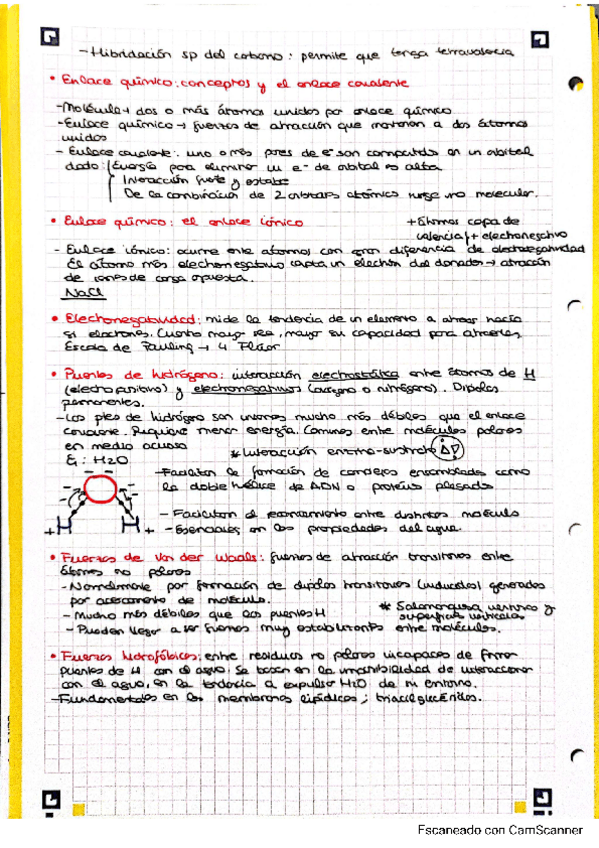 - Hibridación sp del carbono: permite que tenga tetravalencia
• Enlace químico: conceptos y el enlace covalente
- Molécula → dos o más átomos unidos por enlace químico
- Enlace químico → fuerzas de atracción que mantienen a dos átomos
unidos
- Enlace covalente: uno o más pares de e- son compartidos en un orbital
dado: Energía para eliminar un e- de orbital es alta
Interacción fuerte y estable
De la combinación de 2 orbitales atómicos surge uno molecular.
• Enlace químico: el enlace iónico
+ Átomos capa de
valencia / + electronegativo
- Enlace iónico: ocurre entre átomos con gran diferencia de electronegatividad
El átomo más electronegativo capta un electrón del donador → atracción
de iones de carga opuesta.
NaCl
• Electronegatividad: mide la tendencia de un elemento a atraer hacia
sí electrones. Cuanto mayor sea, mayor su capacidad para atraerlos
Escala de Pauling → 4 Flúor
• Puentes de hidrógeno: interacción electrostática entre átomos de H
(electropositivo) y electronegativos (oxígeno o nitrógeno). Dipolos
permanentes.
- Los ptes de hidrógeno son uniones mucho más débiles que el enlace
covalente. Requiere menor energía. Comunes entre moléculas polares
en medio acuoso
* Interacción enzima-sustrato
Ej: H2O
- Facilitan la formación de complejos ensamblados como
la doble hélice de ADN o proteína plegada
H
H
+
+
- Facilitan el reconocimiento entre distintas moléculas
- Esenciales en las propiedades del agua.
• Fuerzas de Van der Waals: fuerzas de atracción transitorias entre
átomos no polares
- Normalmente por formación de dipolos transitorios (inducidos) generados
por acercamiento de molécula.
- Mucho más débiles que los puentes H
* Salamanquesa
y
superficies verticales
- Pueden llegar a ser fuerzas muy estabilizantes entre moléculas.
• Fuerzas hidrofóbicas: entre residuos no polares incapaces de formar
puentes de H con el agua. Se basan en la imposibilidad de interaccionar
con el agua, en la tendencia a expulsar H2O de su entorno.
- Fundamentales en las membranas lipídicas; triacilglicéridos.
Escaneado con CamScanner